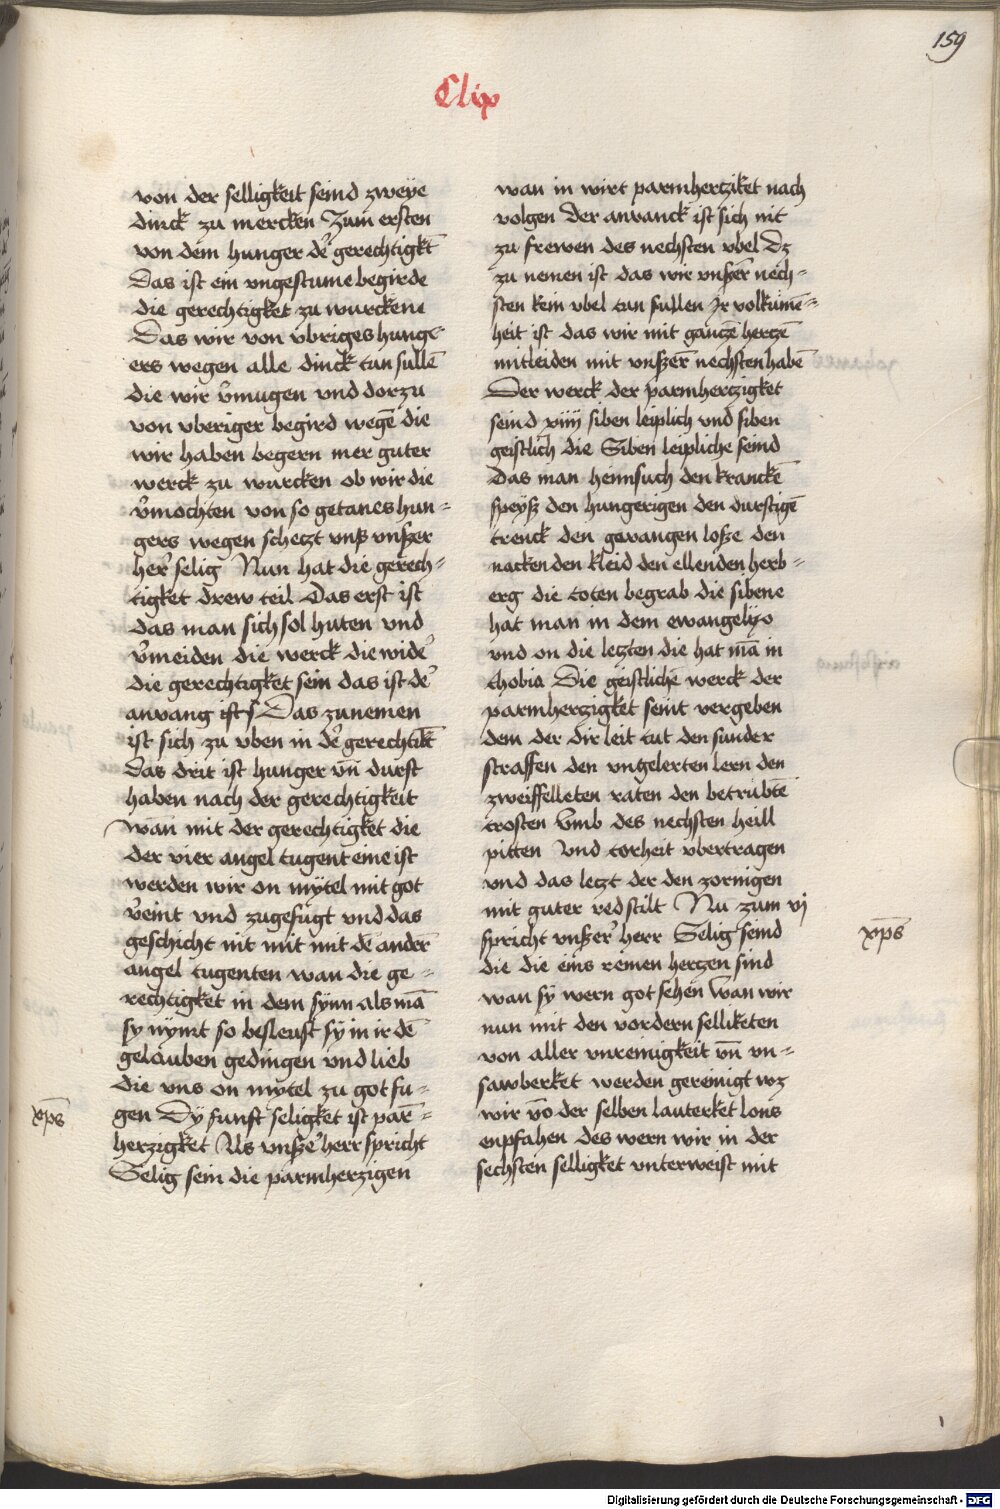 159
Clix
von der selligkeit seind zweÿe
dinck zu mercken Zum ersten
von dem hunger der̉ gerechtigkt̄
Das ist ein vngestume begirde
die gerechtigket zu wurckenn
Das wir von vbriges hunge-
ers wegen alle dinck tun sullē
die wir v̉mugen vnd dorzu
von vberiger begird wegē die
wir haben begern mer guter
werck zu wurcken ob wir die
v̉mochten von so getanes hun-
gers wegen scheczt vnß vnßer
her̉ selig Nun hat die gerech-
tigket drew teil Das erst ist
das man sich sol huten vnd
v̉meiden die werck die wid̉
die gerechtigket sein das ist d̉
anvang ist Das zunemen
ist sich zu vben in d̉ gerechtikt̄
Das drit ist hunger vn̄ durst
haben nach der gerechtigkeit
wan mit der gerechtigket die
der vier angel tugent eine ist
werden wir on mÿtel mit got
v̉eint vnd zugefugt vnd das
geschicht nit mit mit dē andern̄
angel tugenten wan die ge-
rechtigket in dem sÿnn als mā
sy nÿmt so besleust sÿ in ir dē
gelauben gedingen vnd lieb
die vns on mÿtel zu got fu-
gen Dÿ funft seligket ist par̄-
herzigket Als vnßẻ herr spricht
Selig sein die parmherzigen
xp̄s
wan in wirt parmhercziket nach
volgen Der anvanck ist sich nit
zu frewen des nechsten vbel Dz
zu nemen ist das wir vnßer̄ nech-
sten kein vbel tun sullen Ir volkumē-
heit ist das wir mit ganczē herczē
mitleiden mit vnßer̄ nechsten habē
Der werck der parmherczigket
seind xiiij siben leiplich vnd siben
geistlich die Siben leipliche seind
Das man heimsuch den kranckē
speÿß den hungerigen den durstigē
trenck den gevangen loße den
nackenden kleid den ellenden herb-
erg die toten begrab die sibene
hat man in dem ewangelÿo
vnd on die leczten die hat mā in
thobia Die geistlichē werck der
parmherzigket seint vergeben
dem der dir leit tut den sunder
straffen den vngelerten lern den
zweiffelleten raten den betrubtē
trosten Vmb des nechsten heill
pitten Vnd torheit vbertragen
vnd das leczt der den zornigen
mit guter red stilt Nu zum vj
spricht vnßer̉ herr Selig seind
die die eins reinen herczen sind
wan sÿ wern got sehen Wan wir
nun mit den vordern selliketen
von aller vnreinigkeit vn̄ vn-
sawberket werden gereinigt wz
wir vō der selben lauterket lons
enpfahen des wern wir in der
sechsten selligket vnterweist mit
xp̄s
Digitalisierung gefördert durch die Deutsche Forschungsgemeinschaft - DFG